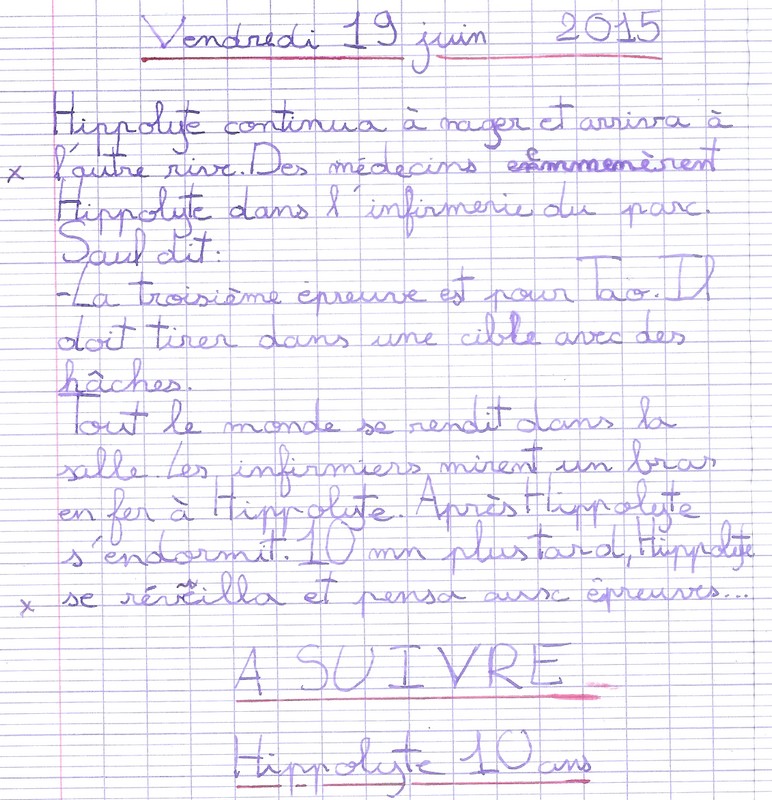 Vendredi 19 juin 2015
Hippolyte continua à nager et arriva à
x l'autre rive. Des médecins emmenèrent
Hippolyte dans l'infirmerie du parc.
Saul dit:
-La troisième épreuve est pour Tao. Il
doit tirer dans une cible avec des
hâches.
Tout le monde se rendit dans la
salle. Les infirmiers mirent un bras
en fer à Hippolyte. Après Hippolyte
s'endormit. 10 mn plus tard, Hippolyte
x se réveilla et pensa aux épreuves...
A SUIVRE
Hippolyte 10 ans